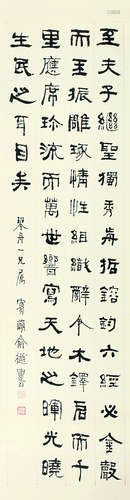 至夫子繼聖獨秀前哲鎔鈞六經必金聲
而玉振雕琢情性組織辭令木鐸启而千
里應席珍流而萬世響寫天地之暉光曉
生民之耳目矣
琴舟一兄屬 賓萌俞樾書